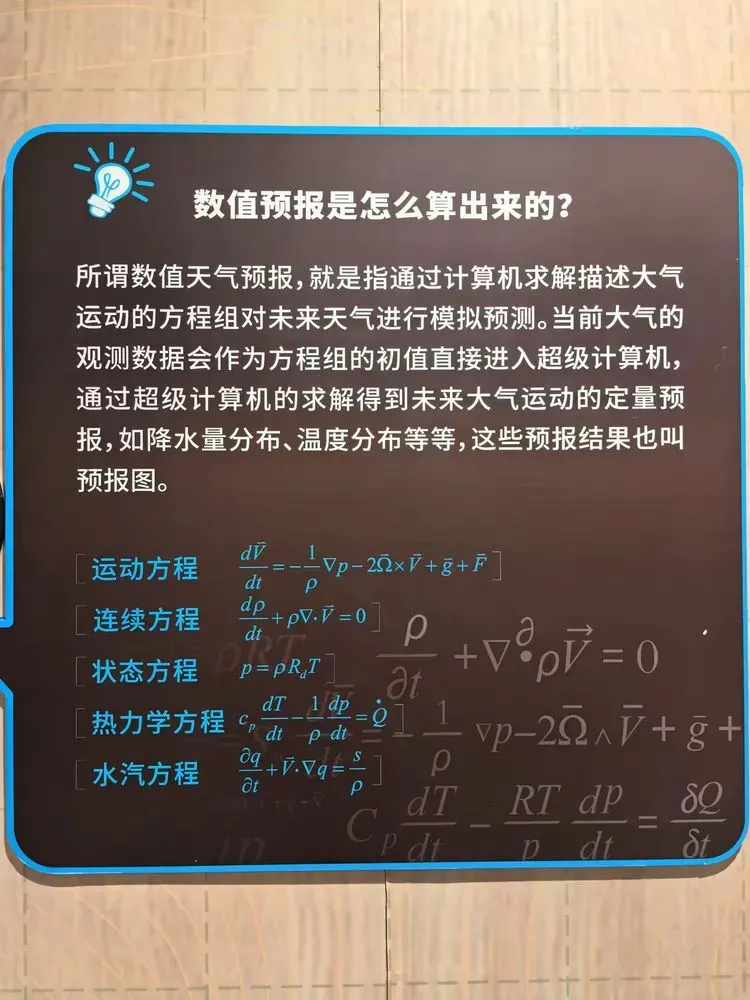 数值预报是怎么算出来的？
所谓数值天气预报，就是指通过计算机求解描述大气
运动的方程组对未来天气进行模拟预测。当前大气的
观测数据会作为方程组的初值直接进入超级计算机，
通过超级计算机的求解得到未来大气运动的定量预
报，如降水量分布、温度分布等等，这些预报结果也叫
预报图。
[ 运动方程 d\vec{V}/dt = -1/ρ ∇p - 2\vec{Ω}×\vec{V} + \vec{g} + \vec{F} ]
[ 连续方程 dρ/dt + ρ∇·\vec{V} = 0 ]
[ 状态方程 p = ρR_dT ]
[ 热力学方程 c_p dT/dt - 1/ρ dp/dt = \dot{Q} ]
[ 水汽方程 ∂q/∂t + \vec{V}·∇q = s/ρ ]
ρRT
ρ/∂t + ∇∂•ρ\vec{V} = 0
= - 1/ρ ∇p - 2\vec{Ω} ∧ \vec{V} + \vec{g} +
C_p dT/dt - RT/p dp/dt = δQ/δt